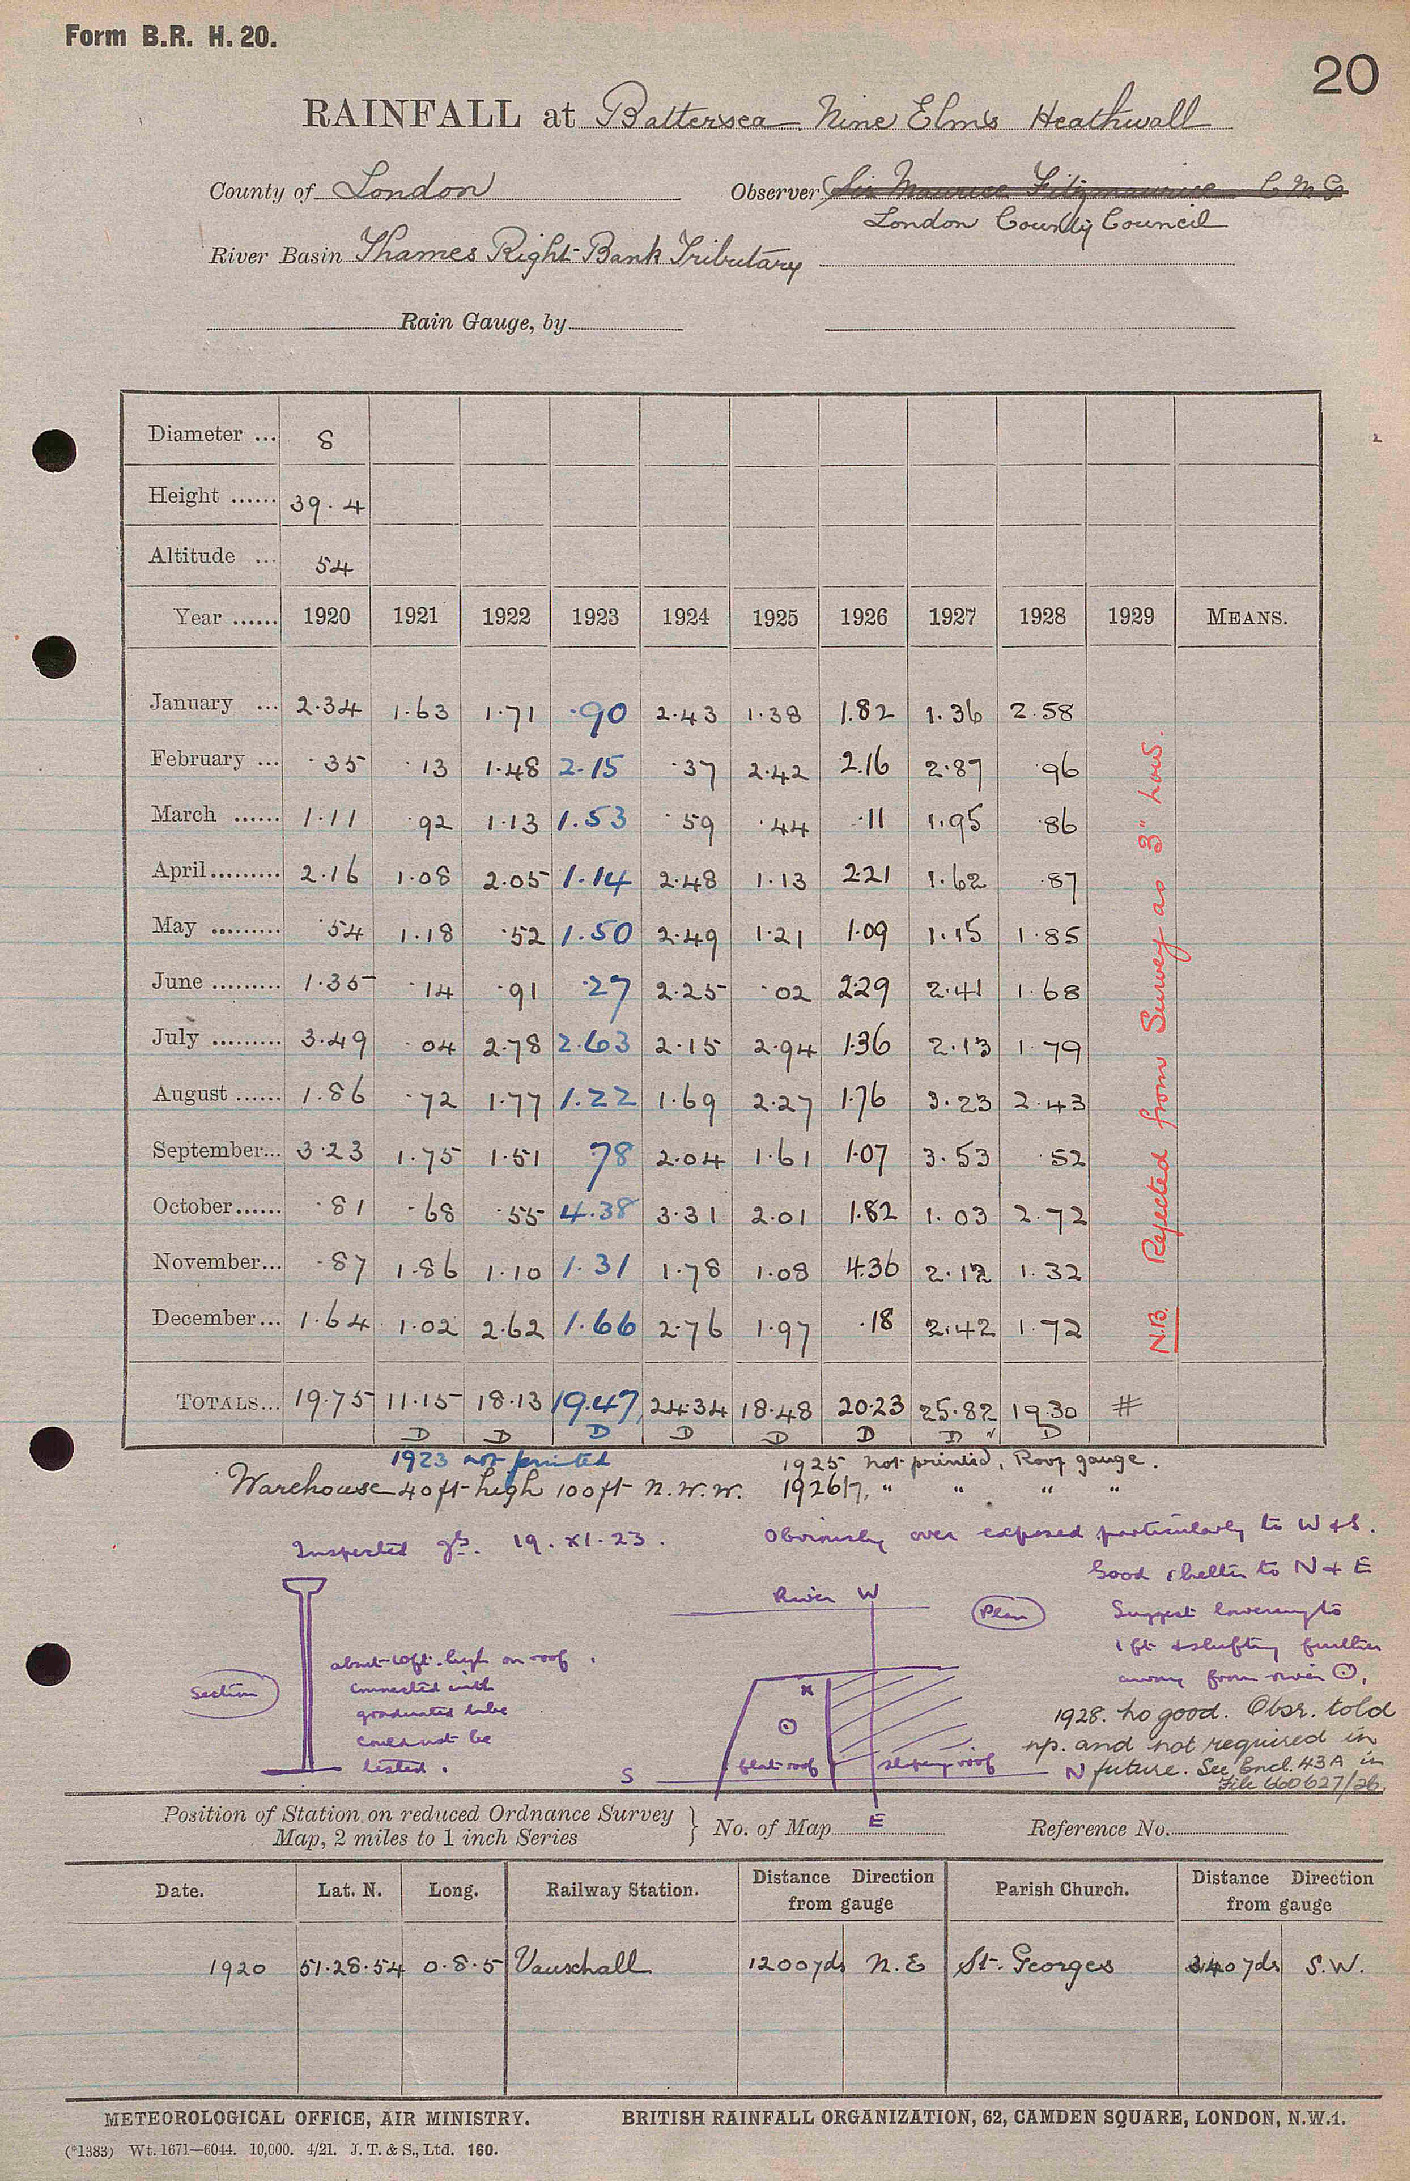 Form B.R. H. 20.
20
RAINFALL at Battersea - Nine Elms Heathwall
County of London Observer Sir Maurice Fitzmaurice C M G
London County Council
River Basin Thames Right Bank Tributary
Rain Gauge, by
Diameter ... 8
Height ...... 39.4
Altitude ... 54
Year ...... 1920 1921 1922 1923 1924 1925 1926 1927 1928 1929 MEANS.
January ... 2.34 1.63 1.71 .90 2.43 1.38 1.82 1.36 2.58
February ... .35 .13 1.48 2.15 .37 2.42 2.16 2.87 .96
March ...... 1.11 .92 1.13 1.53 .59 .44 .11 1.95 .86
April ......... 2.16 1.08 2.05 1.14 2.48 1.13 2.21 1.62 .87
May ......... .54 1.18 .52 1.50 2.49 1.21 1.09 1.15 1.85
June ......... 1.35 .14 .91 .27 2.25 .02 2.29 2.41 1.68
July ......... 3.49 .04 2.78 2.63 2.15 2.94 1.36 2.13 1.79
August ...... 1.86 .72 1.77 1.22 1.69 2.27 1.76 3.23 2.43
September... 3.23 1.75 1.51 78 2.04 1.61 1.07 3.53 .52
October...... .81 .68 .55 4.38 3.31 2.01 1.82 1.03 2.72
November... .87 1.86 1.10 1.31 1.78 1.08 4.36 2.12 1.32
December... 1.64 1.02 2.62 1.66 2.76 1.97 .18 2.42 1.72
TOTALS... 19.75 11.15 18.13 19.47 24.34 18.48 20.23 25.82 19.30 #
D D D D D D D D
N.B. Rejected from Survey as 3" low.
1923 not printed
1925 not printed, Roof gauge.
Warehouse 40ft high 100ft N.W.W. 1926/7, " " " "
Inspected 19.XI.23.
Obviously over exposed particularly to W & S.
Good shelter to N + E
Suggest lowering to
1 ft & shifting further
away from river ⊙.
River W
Plan
Section
about 10ft. high on roof.
connected with
graduated tube
could not be
tested.
x
flat roof
sloping roof
S
N
E
1928. No good. Obsr. told
n.p. and not required in
future. See Encl. 43A in
File 660627/26.
Position of Station on reduced Ordnance Survey Map, 2 miles to 1 inch Series } No. of Map Reference No.
Date. Lat. N. Long. Railway Station. Distance Direction from gauge Parish Church. Distance Direction from gauge
1920 51.28.54 0.8.5 Vauxhall 1200yds N.E St. Georges 340yds S.W.
METEOROLOGICAL OFFICE, AIR MINISTRY. BRITISH RAINFALL ORGANIZATION, 62, CAMDEN SQUARE, LONDON, N.W.1.
(*1383) Wt. 1671—6044. 10,000. 4/21. J. T. & S., Ltd. 160.